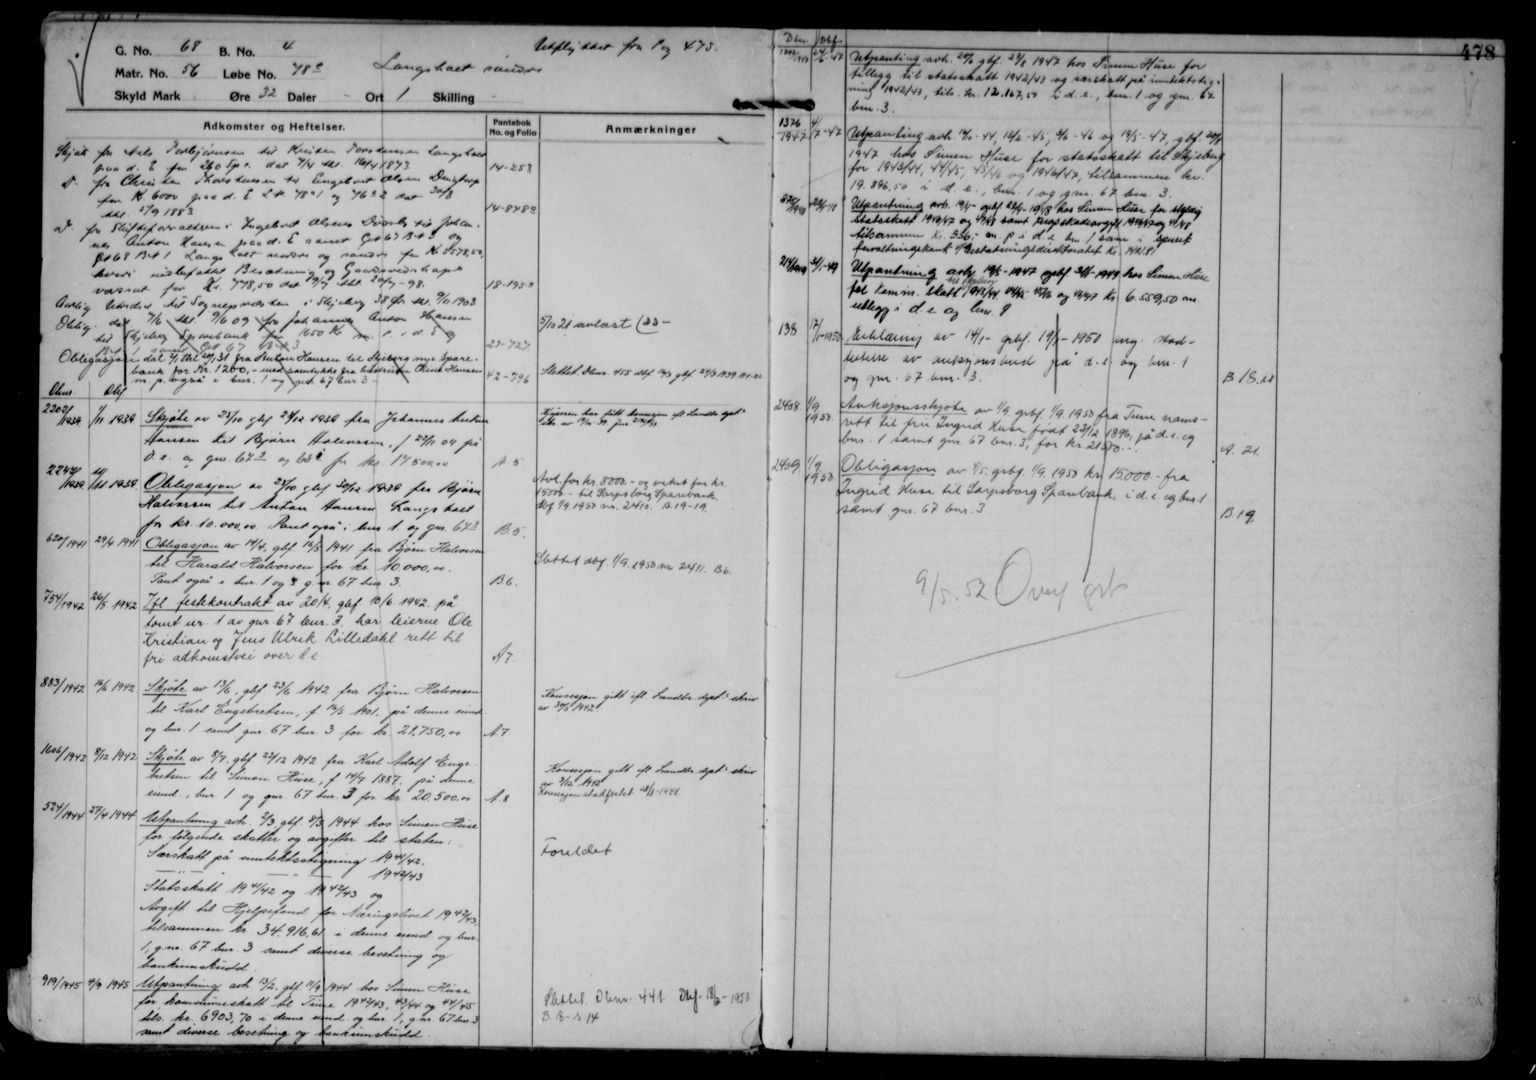 G. No. 68 B. No. 4
Utflyttet fra Pag 473.
Matr. No. 56 Løbe No. 78c
Langsholt søndre
Skyld Mark Øre 32 Daler Ort 1 Skilling
Adkomster og Heftelser.
Pantebok No. og Folio
Anmærkninger
Skjøte fra Nels Torbjørnsen til Kristen Torstensen Langsholt
paa d. E for 260 Spd. dat 7/4 tht. 16/4 1873
14-253
Do. fra Christen Thorstensen til Engebret Olsen
for K. 6000 paa d. E L No 78a1 og 76 dat 30/8
tht. 5/9 1883
14-848a
Do. fra Skifteforvalteren i Ingebret Olsens Dødsbo til Johan-
nes Anton Hansen paa d. E samt Gno 67 Bno 3 og
Gno 68 Bno 1 Langsholt nedre og søndre for Kr. 8578,50,
hvori indbefattet Besætning og Gaardsredskaper
værsat for Kr. 778,50 dat 19/7 tht. 20/7-98.
18-195
Aarlig Utredsel til Sogneprästen i Skjeberg 38 Øre tht. 9/10 1903
Oblig. dat 7/6 tht 9/6 09 fra Johannes Anton Hansen
til Skjeberg Sparebank for 1650 Kr m. p. i d. E og
Bno 1 samt Gno 67 Bno 3
5/10 21 avlæst
23-727
Obligasjon dat 2/1 tht 29/1 31 fra Anton Hansen til Skjeberg nye Spare-
bank for kr. 1200,- med samtykke fra hustru Oline Hansen
m p. også i bnr. 1 og gnr. 67 bnr 3
42-796
Slettet Dbnr. 455 dbf. 10/3 gbf 24/3 1939
Dbnr Dbf
2202/1939 1/11 1939 Skjøte av 23/10 gbf 29/12 1939 fra Johannes Anton
Hansen til Bjørn Halvorsen, f 23/10 04 på
d. e. og gnr. 67.3 og 68.1 for kr. 17500.00
A 5.
Kjøperen har fått konsesjon ifl Landbr. dept's
2247/1939 1939 Obligasjon av 23/10 gbf 30/12 1939 fra Bjørn
Halvorsen til Anton Hansen Langsholt
for kr. 10.000,00. Pant også i bnr 1 og gnr. 67.3
B 5.
Avl. for kr. 8000.- og veket for kr.
15000.- til Sarpsborg Sparebank,
dbf 1/9 1950 nr. 2410. B.19-19.
620/1941 29/4 1941 Obligasjon av 14/4, gbf 16/5 1941 fra Bjørn Halvorsen
til Harald Halvorsen for kr. 10.000,00.
Pant også i bnr 1 og gnr 67 bnr 3.
B 6.
Slettet dbf. 1/9 1950 nr 2411. B 6.
754/1942 26/5 1942 Ifl. festekontrakt av 20/4, gbf 10/6 1942. på
tomt nr. 1 av gnr. 67 bnr. 3. har leierne Ole
Kristian og Jens Ulrik Lilledahl rett til
fri adkomstvei over d.e.
A 7.
883/1942 16/6 1942 Skjøte av 13/6, gbf 23/6 1942 fra Bjørn Halvorsen
til Karl Engebretsen, f. 14/5 1901. på denne eiend.
og bnr. 1 samt gnr 67 bnr 3 for kr. 21.750,00
A 7.
Konsesjon gitt ifl. Landbr. dept's skriv
av 30/5 1942.
1606/1942 8/12 1942 Skjøte av 8/9. gbf 22/12 1942 fra Karl Adolf Enge-
bretsen til Simon Huse, f 14/7 1887. på denne
eiend., bnr. 1 og gnr. 67 bnr. 3 for kr. 20.500.00
A. 8
Konsesjon gitt ifl. Landbr. dept's skriv
av 3/12 1942.
Konsesjon stadfestet
524/1944 27/4 1944 Utpantning avh. 2/3 gbf 8/3 1944 hos Simon Huse
for følgende skatter og avgifter til staten:
Særskatt på inntektsstigning 1941/42.
— " — " — 1942/43
Statsskatt 1941/42 og 1942/43 og
Avgift til Hjelpefond for Næringslivet 1942/43,
tilsammen kr. 34.916,61 i denne eiend og bnr.
1, gnr. 67 bnr. 3 samt diverse besetning og
bankinnskudd
Foreldet
919/1945 4/9 1945 Utpantning avh 13/2. gbf 11/9 1944 hos Simon Huse
for kommuneskatt til Tune 1942/43, 43/44 og 44/45
tils. kr. 6903,70 i denne eiend. og bnr. 1, gnr. 67 bnr. 3
samt diverse besetning og bankinnskudd.
Slettet. Dbnr. 441. Dbf. 18/2-1950
B. 8-s 14
478
Dbnr. Dbf.
Utpanting avh. 20/6 gbf. 23/8 1947 hos Simon Huse for
tillegg til statsskatt 1942/43 og særskatt på inntektstig-
ning 1942/43, tils. kr. 12.167,50 i d.e., bnr. 1 og gnr. 67
bnr. 3.
1376/1947 4/7-47 Utpanting avh. 14/11-44, 15/2-45, 9/6-46 og 19/5-47, gbf. 20/8
1947 hos Simon Huse for statsskatt til Skjeberg
for 1943/44, 44/45, 45/46 og 1946/47, tilsammen kr.
19.296,50 i d.e., bnr. 1 og gnr. 67 bnr. 3.
Utpantning avh. 19/4 gbf. 22/4-1948 hos Simon Huse for
Statsskatt 1946/47 og 47/48 samt 1946/47 og 47/48
tilsammen Kr. 336,- m. p i d.e bnr 1 som i
2/1-49 Utpantning avh 19/5-1947 gbf 1949 hos Simon Huse
for komm. skatt 1943/44 44/45 45/46 og 46/47 Kr. 6.559,50 m
utlegg i d.e og bnr. 1
138 17/1-1950. Erklæring av 14/1- gbf. 19/1-1950 ang. stad-
festelse av auksjonsbud på d.e. og bnr. 1
og gnr. 67 bnr. 3.
B 18.
2408. 1/9 1950. Auksjonsskjøte av 1/9. gbf. 1/9 1950 fra Tune nams-
rett til fru Ingrid Huse født 23/12 1896, på d.e. og
bnr. 1 samt gnr. 67 bnr. 3, for kr. 21550.-.
A. 21.
2409 1/9 1950. Obligasjon av 1/5. gbf. 1/9. 1950 kr 15.000.- fra
Ingrid Huse til Sarpsborg Sparebank, i d.e og bnr. 1
samt gnr. 67 bnr. 3
B 19.
9/5.52 Overf ort